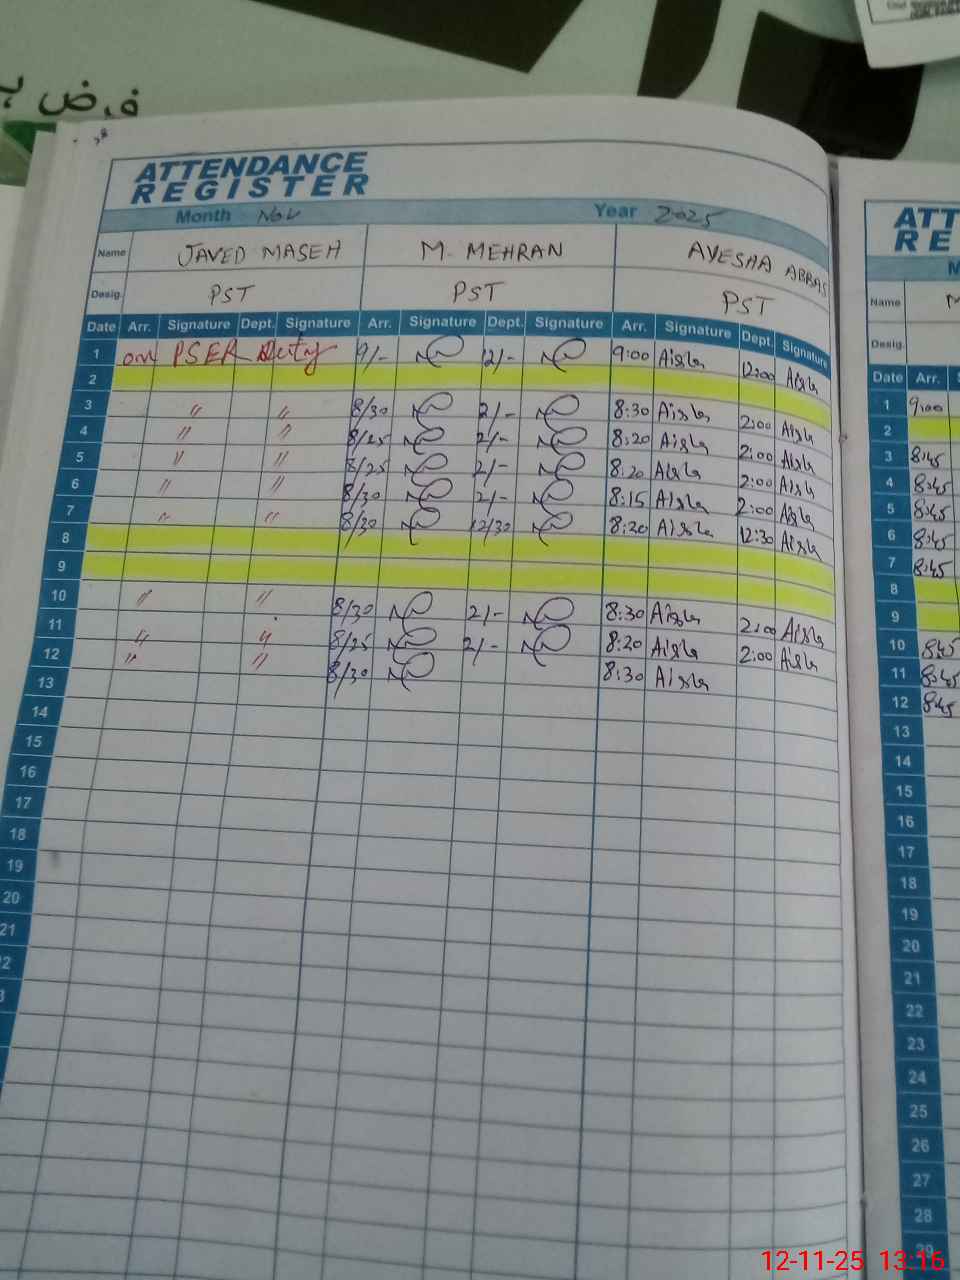 فرض
ATTENDANCE
REGISTER
Month Nov Year 2025
Name JAVED MASEH M. MEHRAN AYESHA ABBAS
Desig. PST PST PST
Date Arr. Signature Dept. Signature Arr. Signature Dept. Signature Arr. Signature Dept. Signature
1 on PSER Duty 9/- 12/- 9:00 Aisha 12:00 Aisha
2
3 " " 8/30 2/- 8:30 Aisha 2:00 Aisha
4 " " 8/25 2/- 8:20 Aisha 2:00 Aisha
5 " " 8/25 2/- 8:20 Aisha 2:00 Aisha
6 " " 8/30 2/- 8:15 Aisha 2:00 Aisha
7 " " 8/30 12/30 8:20 Aisha 12:30 Aisha
8
9
10 " " 8/30 2/- 8:30 Aisha 2:00 Aisha
11 " " 8/25 2/- 8:20 Aisha 2:00 Aisha
12 " " 8/30 8:30 Aisha
13
14
15
16
17
18
19
20
21
ATT
RE
M
Name M
Desig.
Date Arr. S
1 9:00
2
3 8:45
4 8:45
5 8:45
6 8:45
7 8:45
8
9
10 8:45
11 8:45
12 8:45
13
14
15
16
17
18
19
20
21
22
23
24
25
26
27
28
29
12-11-25 13:16